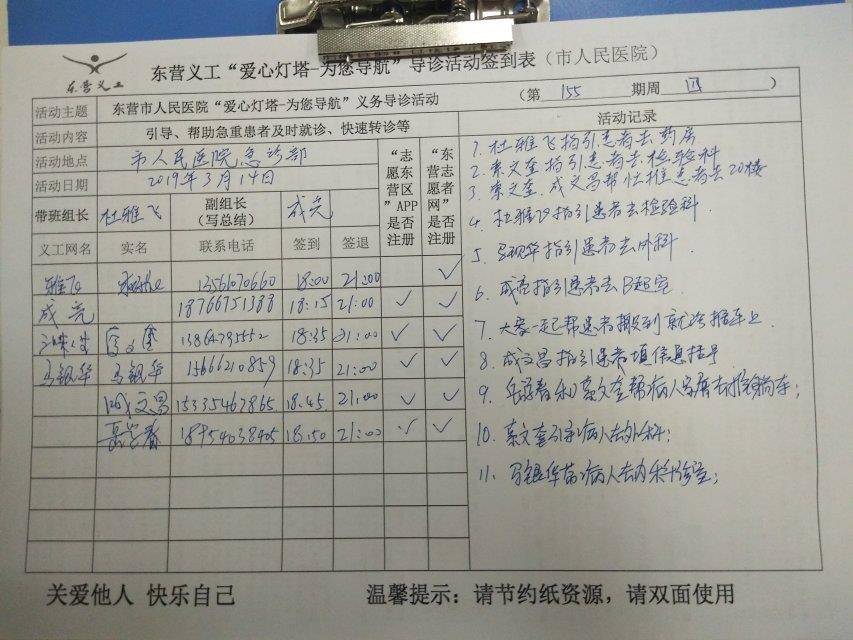 东营义工
东营义工“爱心灯塔-为您导航”导诊活动签到表（市人民医院）
活动主题 东营市人民医院“爱心灯塔-为您导航”义务导诊活动 （第 155 期周 四 ）
活动内容 引导、帮助急重患者及时就诊、快速转诊等
活动地点 市人民医院急诊部
活动日期 2019年3月14日
带班组长 杜雅飞 副组长（写总结） 成亮
“志愿东营区”APP是否注册
“东营志愿者网”是否注册
义工网名 实名 联系电话 签到 签退
雅飞 13561070660 18:00 21:00 ✓
成亮 18766751388 18:15 21:00 ✓ ✓
18:35 21:00 ✓ ✓
马银华 马银华 15666210859 18:35 21:00 ✓ ✓
成文昌 15335467865 18:45 21:00 ✓ ✓
岳学春 18954638405 18:50 21:00 ✓ ✓
活动记录
1. 杜雅飞指引患者去药房
2. 袁文奎指引患者去检验科
3. 袁文奎、成文昌帮忙推患者去20楼
4. 杜雅飞指引患者去检验科.
5. 马银华指引患者去外科.
6. 成亮指引患者去B超室.
7. 大家一起帮患者搬到就诊推车上.
8. 成文昌指引患者填信息挂号
9. 岳学春和袁文奎帮病人家属去推躺车；
10. 袁文奎引导病人去外科；
11. 马银华病人去内科诊室；
关爱他人 快乐自己 温馨提示：请节约纸资源，请双面使用